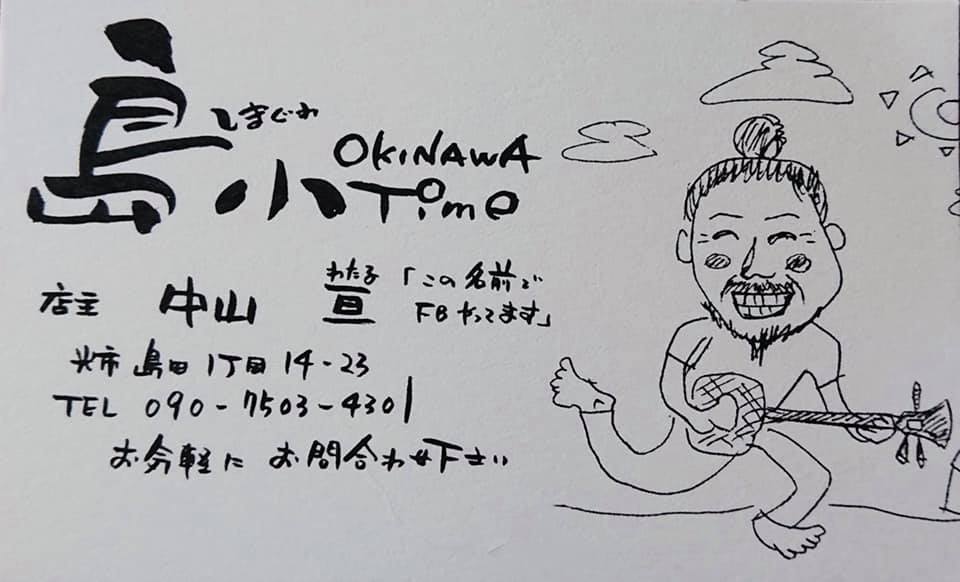 島小
しまぐわ
OKINAWA
Time
店主 中山 亘
わたる
「この名前で
FBやってます」
光市 島田 1丁目 14-23
TEL 090-7503-4301
お気軽に お問合わせ下さい